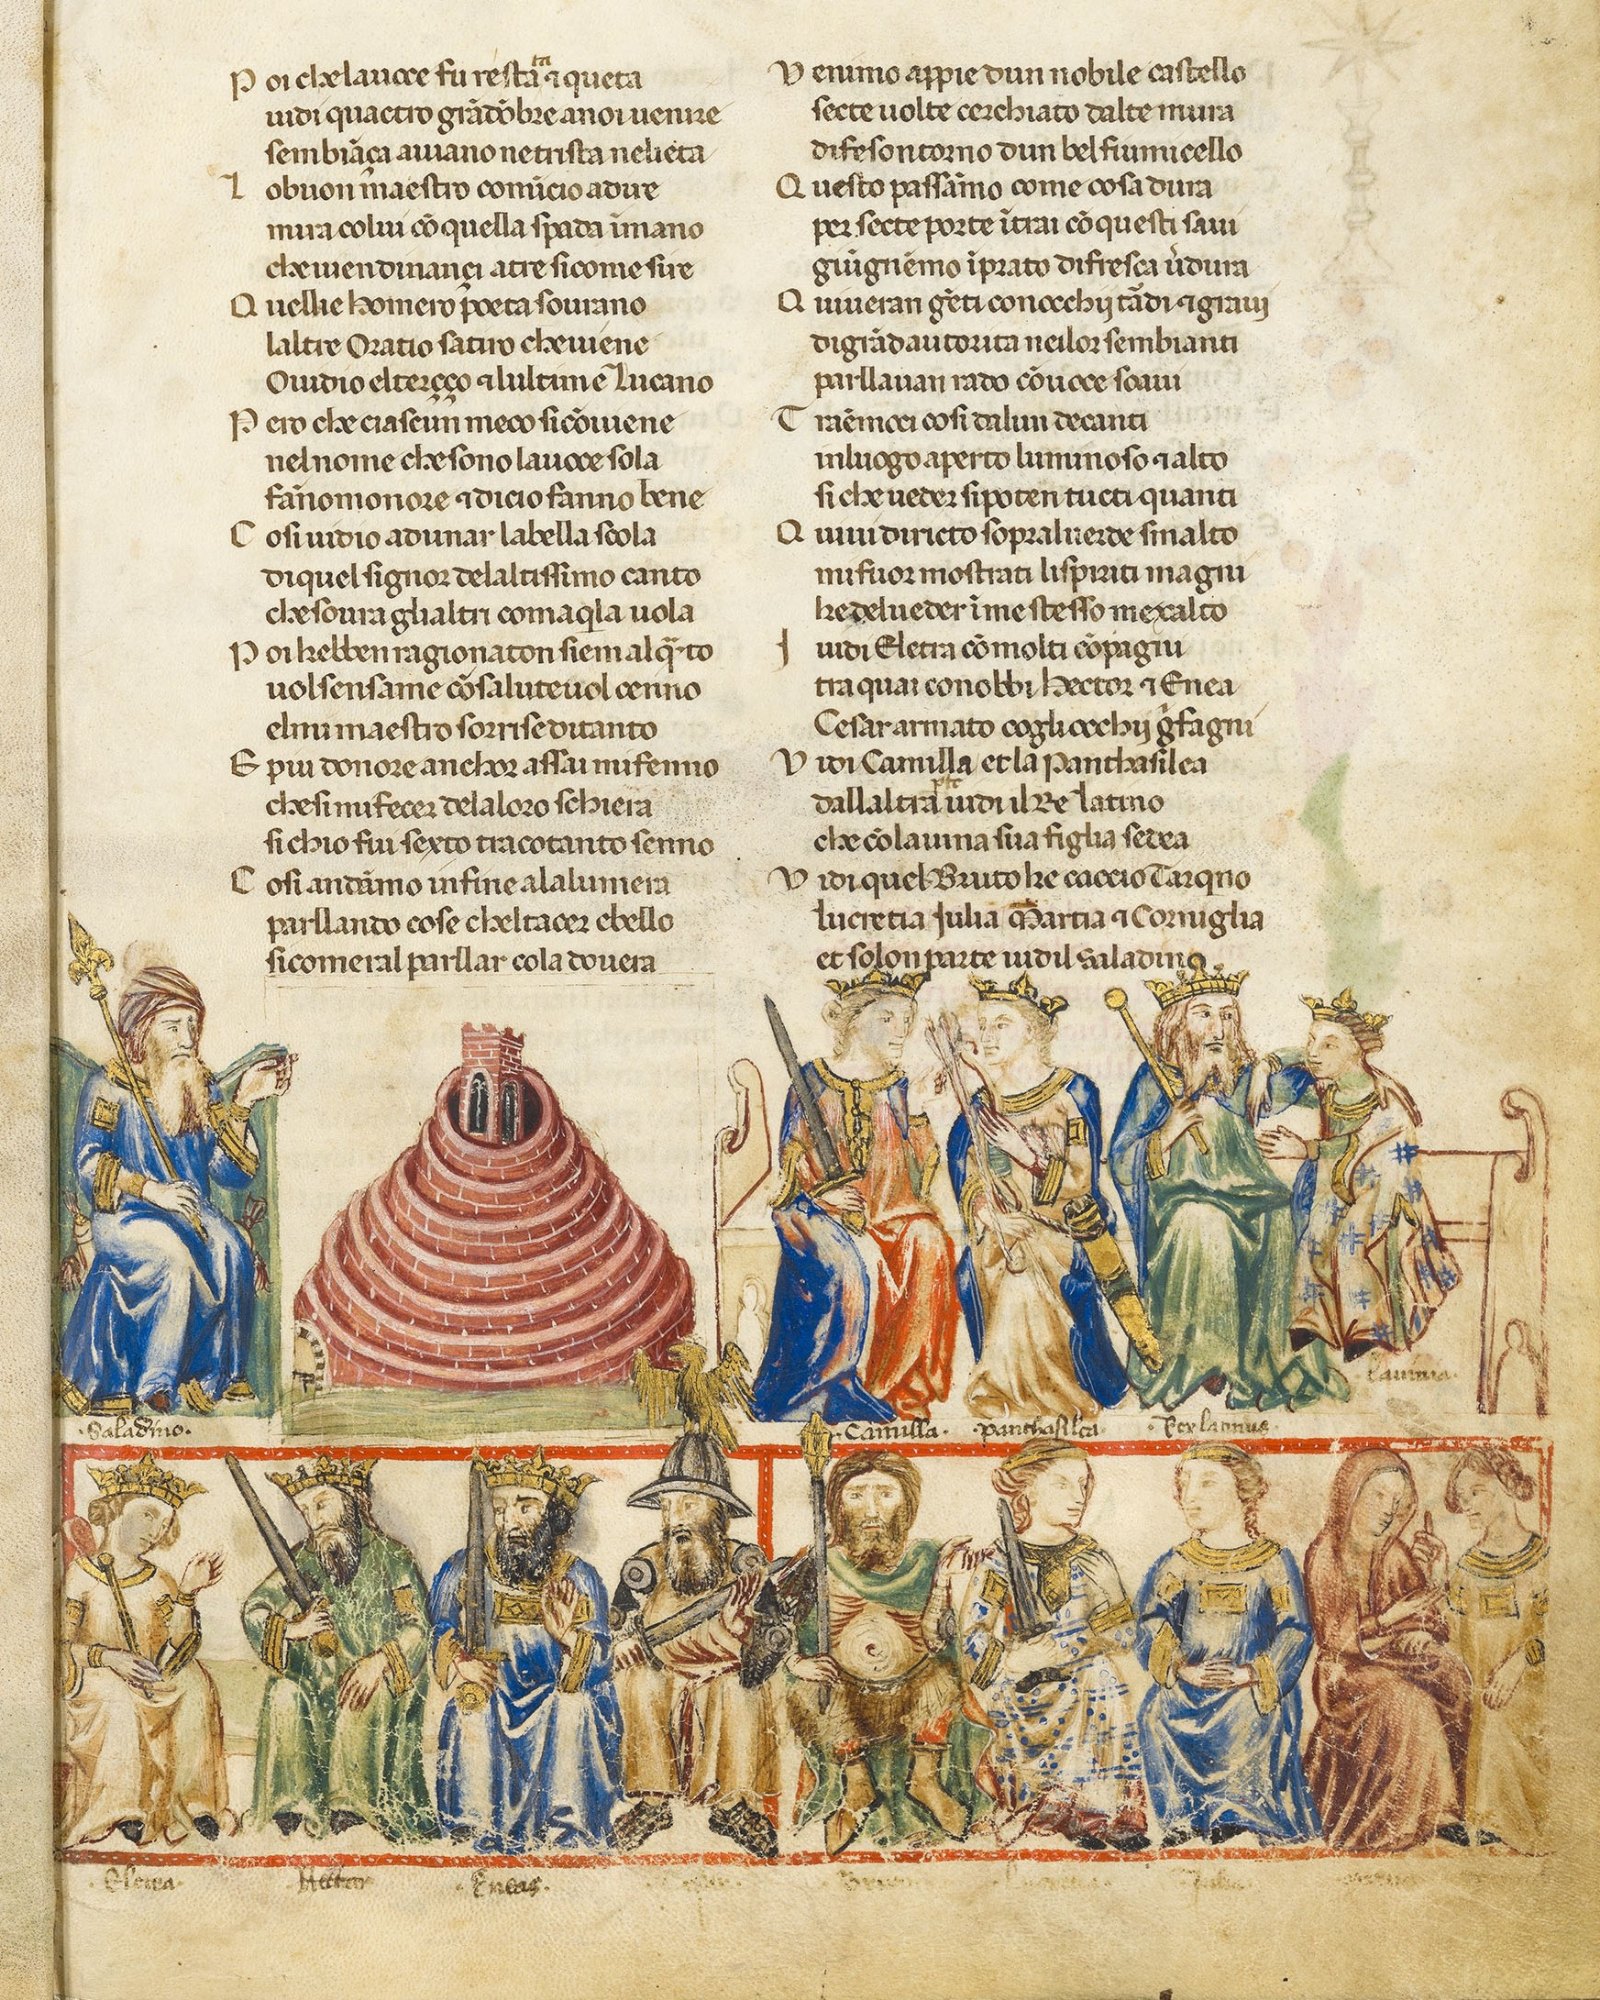 Poi che lauoce fu restata ⁊ queta
uidi quactro grãdõbre anoi uenire
sembiãça auiano netrista nelieta
Lobuon maestro comĩcio adire
mira colui cõ quella spada ĩmano
cheuiendinançi atre sicome sire
Quellie homero poeta sourano
laltre Oratio satiro cheuiene
Ouidio elterço ⁊ lultimẽ Lucano
Pero che ciascun meco sicõuiene
nelnome chesono lauoce sola
fãnomonore ⁊ dicio fanno bene
Cosi uidio adunar labella scola
diquel signor delaltissimo canto
chesoura glialtri comaqla uola
Poi kebben ragionaton siemalq̃to
uolsensame cõsaluteuol cenno
elmi maestro sorriseditanto
E piu donore anchor assai mifenno
chesimifecer delaloro schiera
sichio fui sexto tracotanto senno
Cosi andãmo infine alalumera
parllando cose cheltacer ebello
sicomeral parllar cola douera
Venimo appie dun nobile castello
secte uolte cerchiato dalte mura
difesontorno dun bel fiumicello
Questo passãmo come cosa dura
per secte porte ĩtrai cõ questi saui
giũgnẽmo ĩprato difresca ũdura
Quiueran gẽti conocchij tãdi ⁊ graui
digrãdautorita neilor sembianti
parllauan rado cõuoce soaui
Traẽmoci cosi dalun decanti
inluogo aperto luminoso ⁊ alto
si che ueder sipoten tucti quanti
Quiui diricto sopraluerde smalto
mifuor mostrati lispiriti magni
kedelueder ĩme stesso mexalto
I uidi Eletra cõ molti cõpagni
tra quai conobbi hector ⁊ Enea
Cesar armato cogliocchij grifagni
Vidi Camilla et la Panthasilea
dallaltra pte uidi il Re latino
che cõlauina sua figlia sedea
Vidi quel Bruto ke caccio Tarqno
lucretia Julia Martia ⁊ Corniglia
et solon parte uidil Saladino
.Saladino.
.Camilla.
.panthasilea.
.Rex latinus.
Lauinia.
Eletra.
Hector
.Eneas.